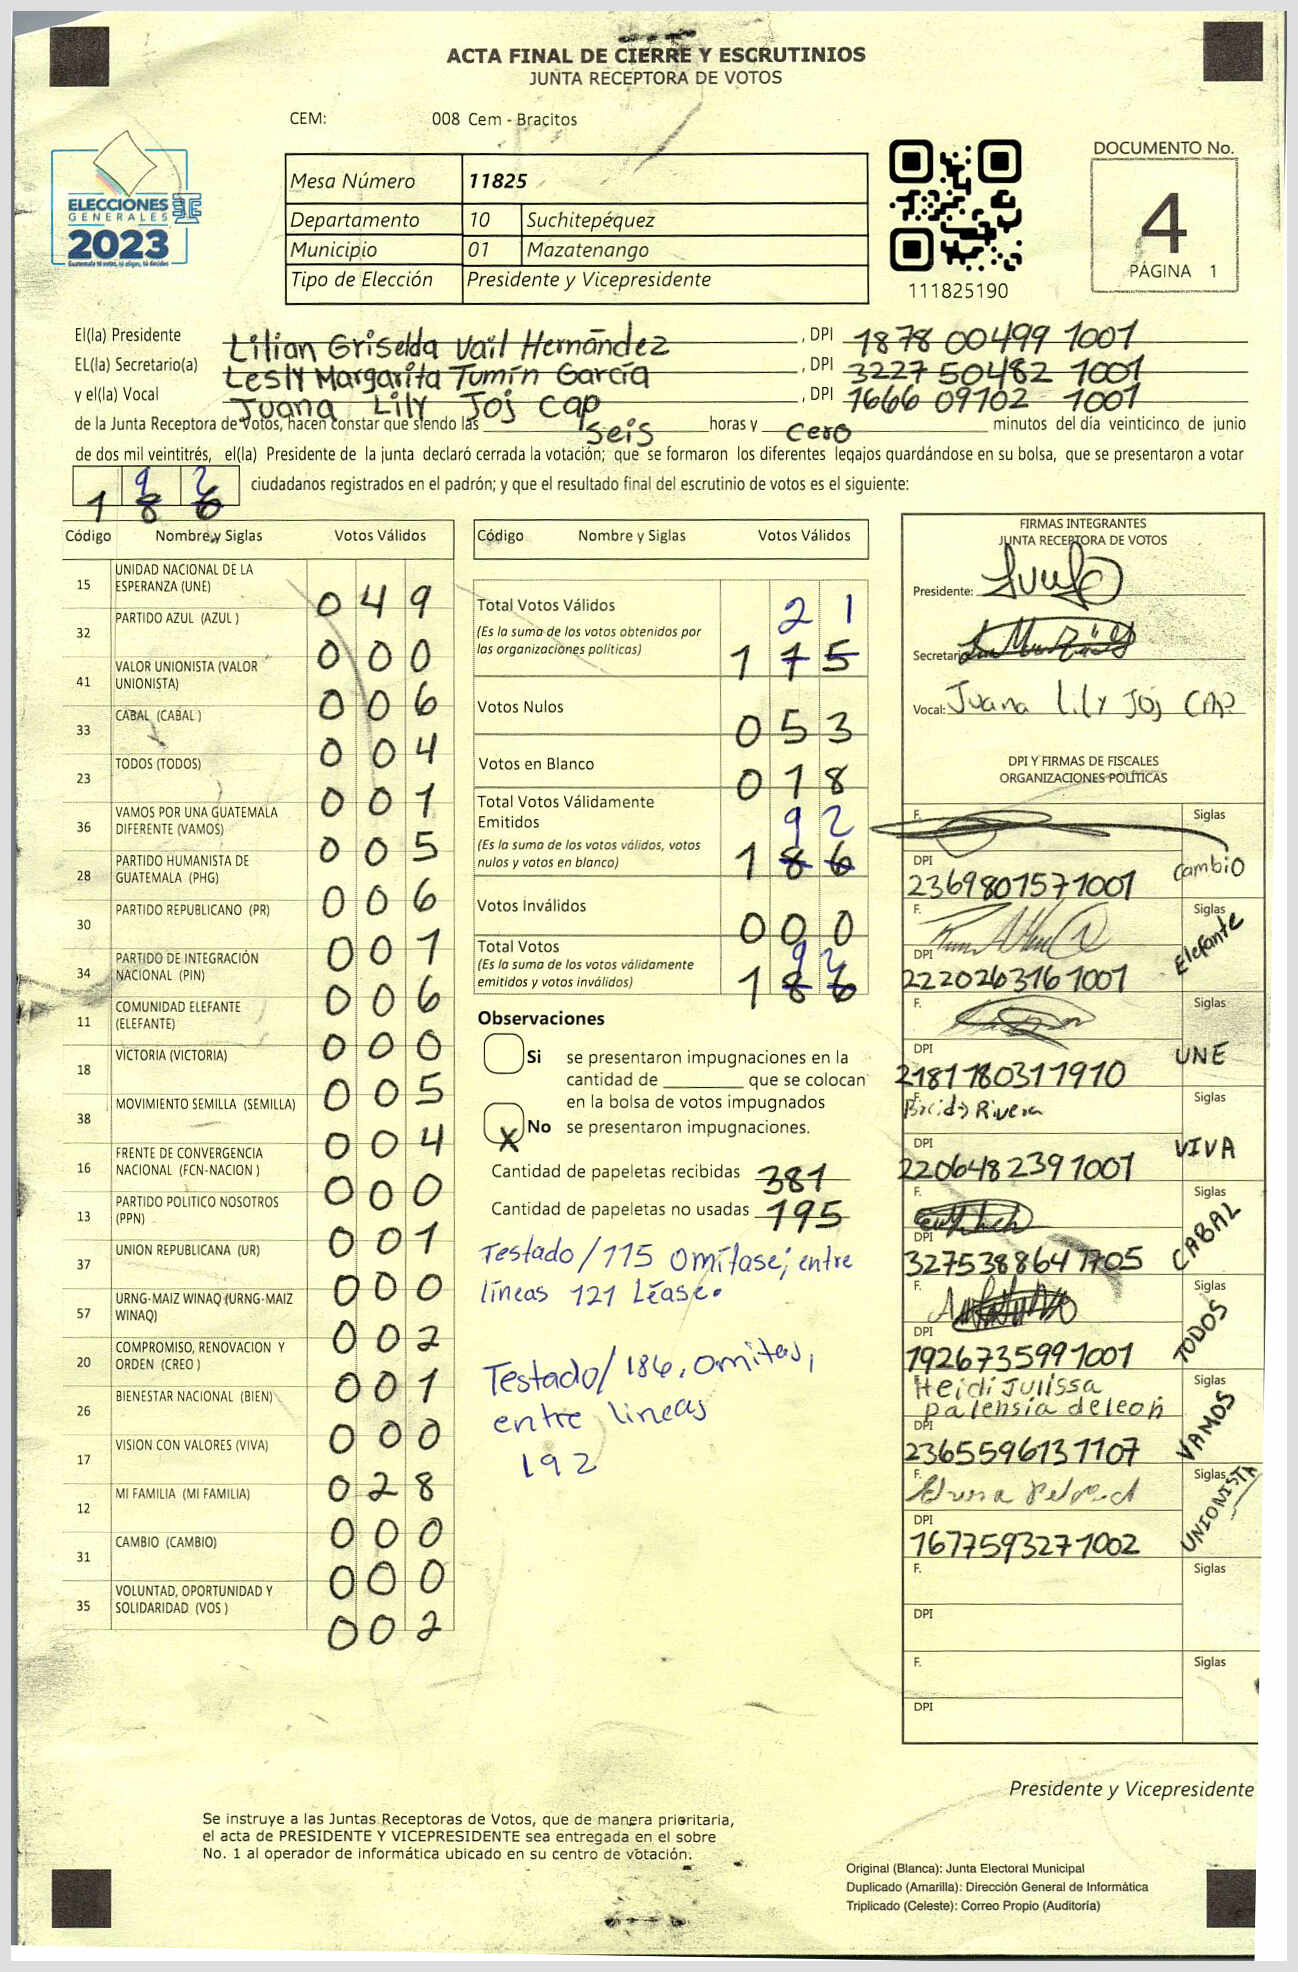 ACTA FINAL DE CIERRE Y ESCRUTINIOS
JUNTA RECEPTORA DE VOTOS
CEM: 008 Cem - Bracitos
ELECCIONES
GENERALES
2023
Mesa Número 11825
Departamento 10 Suchitepéquez
Municipio 01 Mazatenango
Tipo de Elección Presidente y Vicepresidente
111825190
DOCUMENTO No.
4
PÁGINA 1
El(la) Presidente Lilian Griselda Vail Hernández, DPI 1878 00499 1001
EL(la) Secretario(a) Lesly Margarita Tumín García, DPI 3227 50482 1001
y el(la) Vocal Juana Lily Joj Cap, DPI 1666 09102 1001
de la Junta Receptora de Votos, hacen constar que siendo las seis horas y cero minutos del día veinticinco de junio
de dos mil veintitrés, el(la) Presidente de la junta declaró cerrada la votación; que se formaron los diferentes legajos quardándose en su bolsa, que se presentaron a votar
9 2
1 8 6 ciudadanos registrados en el padrón; y que el resultado final del escrutinio de votos es el siguiente:
Código Nombre y Siglas Votos Válidos
15 UNIDAD NACIONAL DE LA ESPERANZA (UNE) 0 4 9
32 PARTIDO AZUL (AZUL ) 0 0 0
41 VALOR UNIONISTA (VALOR UNIONISTA) 0 0 6
33 CABAL (CABAL ) 0 0 4
23 TODOS (TODOS) 0 0 1
36 VAMOS POR UNA GUATEMALA DIFERENTE (VAMOS) 0 0 5
28 PARTIDO HUMANISTA DE GUATEMALA (PHG) 0 0 6
30 PARTIDO REPUBLICANO (PR) 0 0 1
34 PARTIDO DE INTEGRACIÓN NACIONAL (PIN) 0 0 6
11 COMUNIDAD ELEFANTE (ELEFANTE) 0 0 0
18 VICTORIA (VICTORIA) 0 0 5
38 MOVIMIENTO SEMILLA (SEMILLA) 0 0 4
16 FRENTE DE CONVERGENCIA NACIONAL (FCN-NACION ) 0 0 0
13 PARTIDO POLITICO NOSOTROS (PPN) 0 0 1
37 UNION REPUBLICANA (UR) 0 0 0
57 URNG-MAIZ WINAQ (URNG-MAIZ WINAQ) 0 0 2
20 COMPROMISO, RENOVACION Y ORDEN (CREO ) 0 0 1
26 BIENESTAR NACIONAL (BIEN) 0 0 0
17 VISION CON VALORES (VIVA) 0 2 8
12 MI FAMILIA (MI FAMILIA) 0 0 0
31 CAMBIO (CAMBIO) 0 0 0
35 VOLUNTAD, OPORTUNIDAD Y SOLIDARIDAD (VOS ) 0 0 2
Código Nombre y Siglas Votos Válidos
Total Votos Válidos 2 1
(Es la suma de los votos obtenidos por
las organizaciones políticas) 1 1 5
Votos Nulos 0 5 3
Votos en Blanco 0 1 8
Total Votos Válidamente
Emitidos 9 2
(Es la suma de los votos válidos, votos
nulos y votos en blanco) 1 8 6
Votos Inválidos 0 0 0
Total Votos 9 2
(Es la suma de los votos válidamente
emitidos y votos inválidos) 1 8 6
Observaciones
Si se presentaron impugnaciones en la
cantidad de ________ que se colocan
en la bolsa de votos impugnados
X No se presentaron impugnaciones.
Cantidad de papeletas recibidas 381
Cantidad de papeletas no usadas 195
Testado/115 omítase; entre
líneas 121 Léase.
Testado/186, omitas,
entre lineas
192
FIRMAS INTEGRANTES
JUNTA RECEPTORA DE VOTOS
Presidente:
Secretari
Vocal: Juana Lily Joj CAP
DPI Y FIRMAS DE FISCALES
ORGANIZACIONES POLÍTICAS
F. Siglas
DPI
2369801571001 cambio
F. Siglas
DPI
2220263161001 Elefante
F. Siglas
DPI
2181180311910 UNE
F. Rivera Siglas
DPI
2206482391001 VIVA
F. Siglas
DPI
3275388641705 CABAL
F. Siglas
DPI
1926735991001 TODOS
F. Heidi Julissa Siglas
palensia deleon
DPI
2365596131107 VAMOS
F. Siglas
DPI
1677593271002 UNIONISTA
F. Siglas
DPI
F. Siglas
DPI
Presidente y Vicepresidente
Se instruye a las Juntas Receptoras de Votos, que de manera prioritaria,
el acta de PRESIDENTE Y VICEPRESIDENTE sea entregada en el sobre
No. 1 al operador de informática ubicado en su centro de votación.
Original (Blanca): Junta Electoral Municipal
Duplicado (Amarilla): Dirección General de Informática
Triplicado (Celeste): Correo Propio (Auditoría)